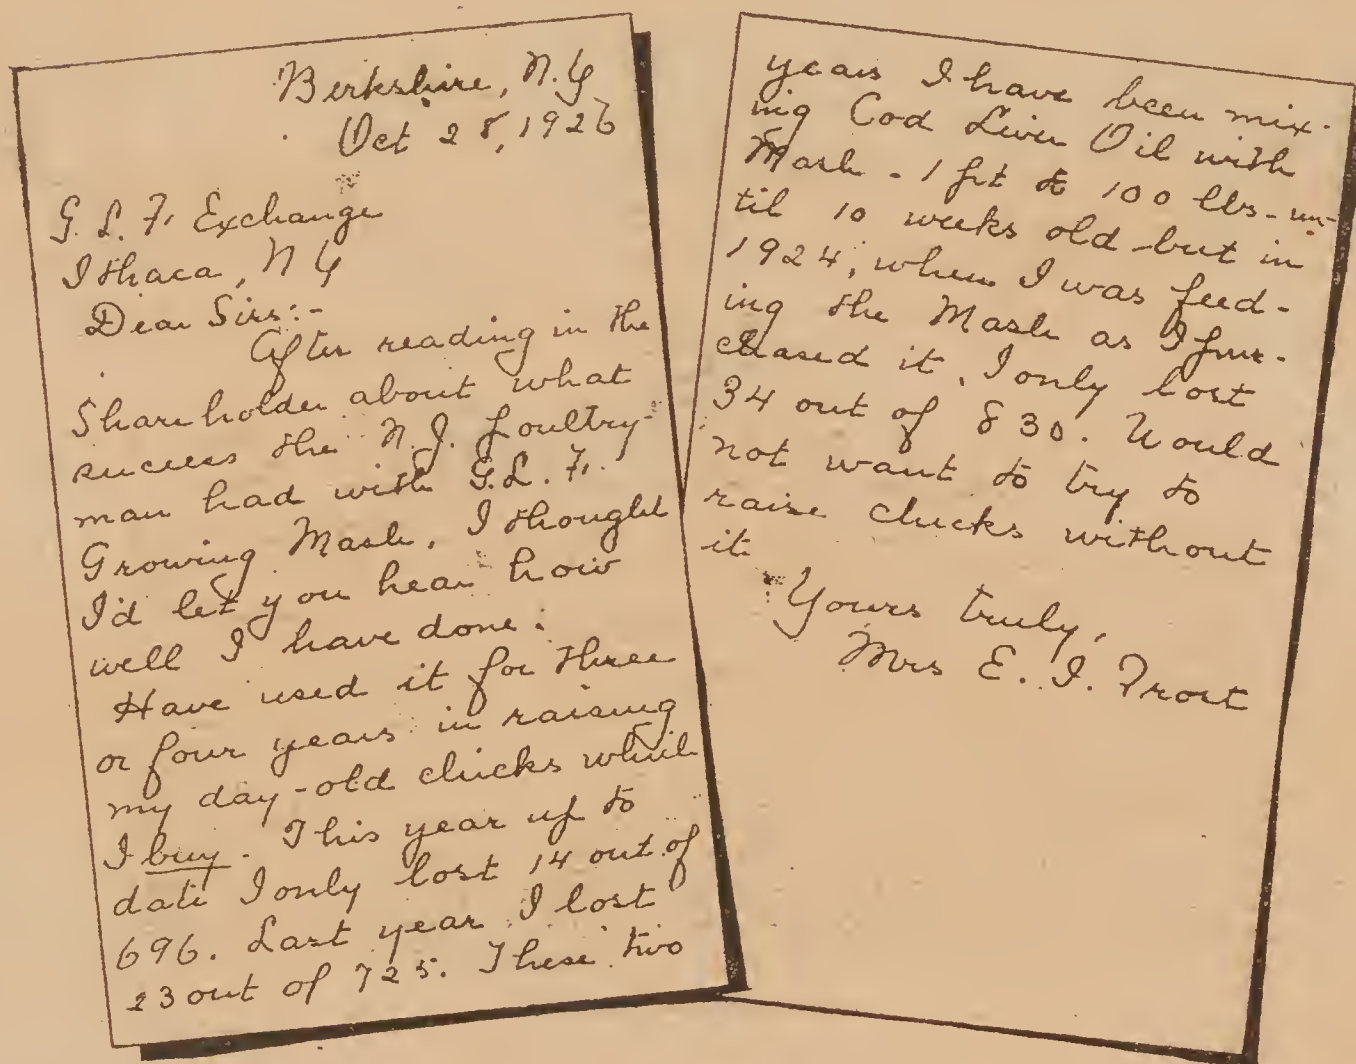 Berkshire, N.Y
Oct 28, 1926
G. L. F. Exchange
Ithaca, N Y
Dear Sirs:-
After reading in the
Shareholder about what
success the N.J. Poultry-
man had with G.L.F.
Growing Mash, I thought
I'd let you hear how
well I have done.
Have used it for three
or four years in raising
my day-old chicks which
I buy. This year up to
date I only lost 14 out of
696. Last year I lost
23 out of 725. These two
years I have been mix-
ing Cod Liver Oil with
Mash - 1 pt to 100 lbs - un-
til 10 weeks old but in
1924, when I was feed-
ing the Mash as I pur-
chased it, I only lost
34 out of 830. Would
not want to try to
raise chicks without
it.
Yours truly,
Mrs E. I. Frost